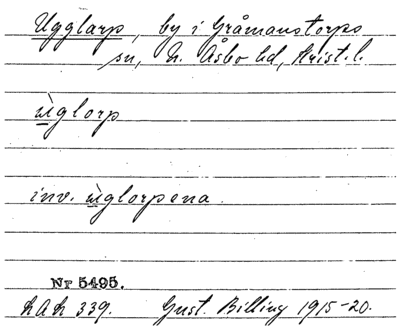 Ugglarp, by i Gråmanstorps
sn, N. Åsbo hd, Krist. l.
ùglorp
inv. ùglorpena.
Nr 5495.
LAL 339. Gust. Billing 1915-20.